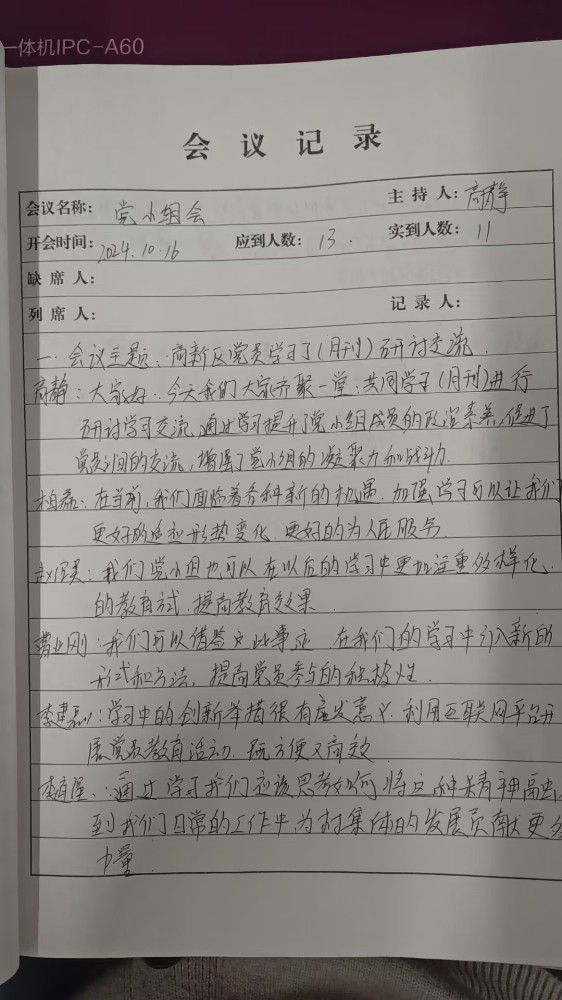 一体机IPC-A60
会议记录
会议名称: 党小组会 主持人: 高静
开会时间: 2024.10.16 应到人数: 13. 实到人数: 11
缺席人:
列席人: 记录人:
一.会议主题:高新区党员学习(月刊)研讨交流.
高静:大家好.今天我们大家齐聚一堂.共同学习(月刊)进行
研讨学习交流,通过学习提升了党小组成员的政治素养,促进了
党员之间的交流,增强了党小组的凝聚力和战斗力.
柏磊:在当前,我们面临着各种新的机遇.加强学习可以让我们
更好的适应形势变化.更好的为人民服务.
我们党小组也可以在以后的学习中更加注重多样化.
的教育方式.提高教育效果.
业刚:我们可以借鉴这些事迹.在我们的学习中引入新的
形式和方法,提高党员参与的积极性.
李建:学习中的创新举措很有启发意义.利用互联网平台开
展党员教育活动.既方便又高效.
李:通过学习我们应该思考如何将这种精神融入
到我们日常的工作中,为村集体的发展贡献更多
力量.